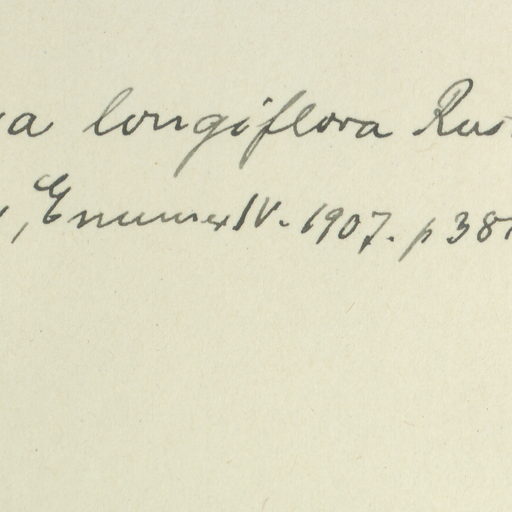 a longiflora Rus
, Enumer IV. 1907. p 38